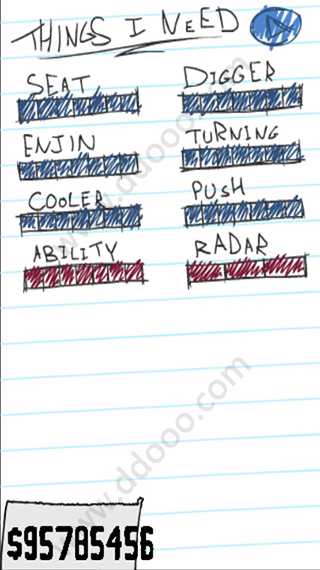 THINGS I NEED
SEAT
DIGGER
ENJIN
TURNING
COOLER
PUSH
ABILITY
RADAR
www.ddooo.com
www.ddooo.com
$95785456